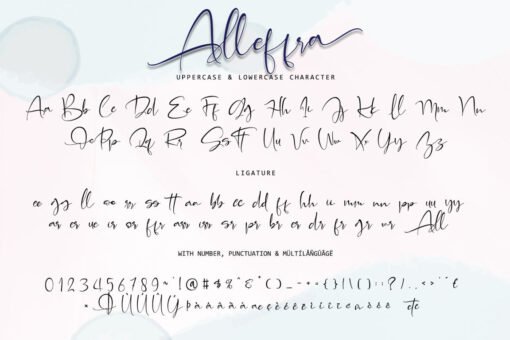 Alleffra
UPPERCASE & LOWERCASE CHARACTER
Aa Bb Cc Dd Ee Ff Gg Hh Ii Jj Kk Ll Mm Nn
Oo Pp Qq Rr Ss Tt Uu Vv Ww Xx Yy Zz
LIGATURE
ee gg ll oo rr ss tt aa bb cc dd ff hh ii mm nn pp uu yy
ar er ir or ffr arr err sr pr br cr dr fr gr wr All
WITH NUMBER, PUNCTUATION & MÙLTÍLÂÑGÚÃGË
0 1 2 3 4 5 6 7 8 9 ~ ! @ # $ % ^ & * ( ) _ - + = { } | \ ( ) : ; ? / . , < >
etc